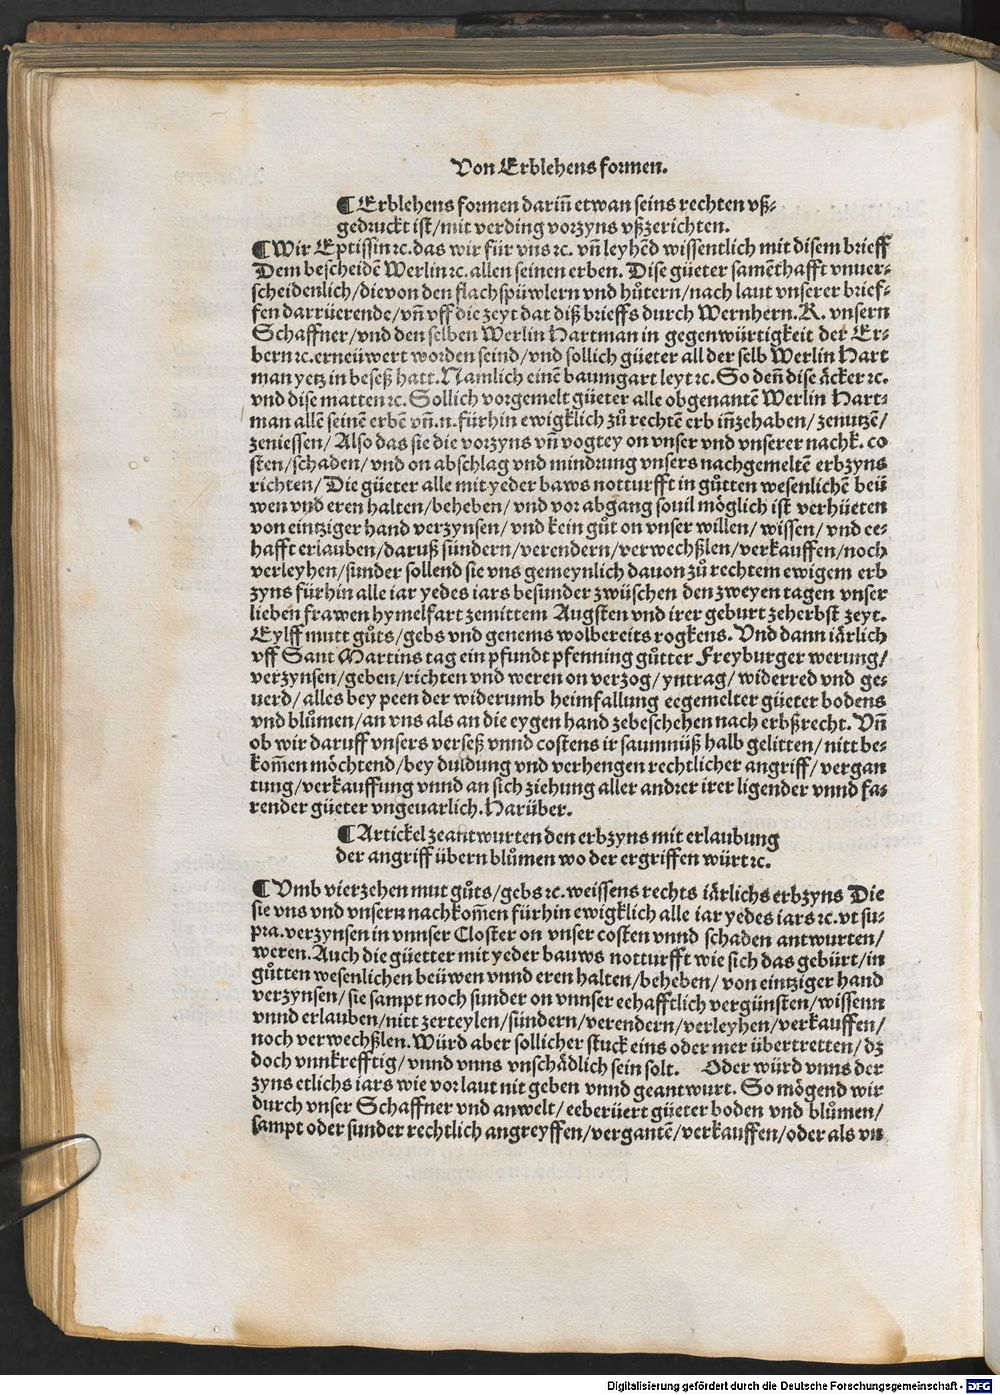 Von Erblehens formen.
¶ Erblehens formen dariñ etwan seins rechten vß-
gedruckt ist/mit verding vorzyns vßzerichten.
¶ Wir Eptissin ꝛc. das wir für vns ꝛc. vñ leyhēd wissentlich mit disem brieff
Dem bescheidē Werlin ꝛc. allen seinen erben. Dise güeter samēthafft vnuer-
scheidenlich/die von den flachspüwlern vnd hůtern/nach laut vnserer brief-
fen darrüerende/vñ vff die zeyt dat diß brieffs durch Wernhern. K. vnsern
Schaffner/vnd den selben Werlin Hartman in gegenwürtigkeit der Er-
bern ꝛc. erneüwert worden seind/vnd sollich güeter all der selb Werlin Hart
man yetz in beseß hatt. Namlich einē baumgart leyt ꝛc. So deñ dise äcker ꝛc.
vnd dise matten ꝛc. Sollich vorgemelt güeter alle obgenantē Werlin Hart-
man allē seinē erbē vñ. n. fürhin ewigklich zů rechtē erb iñzehaben/zenutzē/
zeniessen/Also das sie die vorzyns vñ vogtey on vnser vnd vnserer nachk. co
sten/schaden/vnd on abschlag vnd mindrung vnsers nachgemeltē erbzyns
richten/Die güeter alle mit yeder baws notturfft in gůtten wesenlichē beü
wen vnd eren halten/beheben/vnd vor abgang souil möglich ist verhüeten
von eintziger hand verzynsen/vnd kein gůt on vnser willen/wissen/vnd ee-
hafft erlauben/daruß sündern/verendern/verwechßlen/verkauffen/noch
verleyhen/sunder sollend sie vns gemeynlich dauon zů rechtem ewigem erb
zyns fürhin alle iar yedes iars besunder zwüschen den zweyen tagen vnser
lieben frawen hymelfart zemittem Augsten vnd irer geburt zeherbst zeyt.
Eylff mutt gůts/gebs vnd genems wolbereits rogkens. Vnd dann iärlich
vff Sant Martins tag ein pfundt pfenning gůtter Freyburger werung/
verzynsen/geben/richten vnd weren on verzog/yntrag/widerred vnd ge-
uerd/alles bey peen der widerumb heimfallung eegemelter güeter bodens
vnd blůmen/an vns als an die eygen hand zebeschehen nach erbßrecht. Vñ
ob wir daruff vnsers verseß vnnd costens ir saumnüß halb gelitten/nitt be-
kom̄en möchtend/bey duldung vnd verhengen rechtlicher angriff/vergan
tung/verkauffung vnnd an sich ziehung aller andrer irer ligender vnnd fa-
render güeter vngeuarlich. Harüber.
¶ Artickel zeantwurten den erbzyns mit erlaubung
der angriff übern blůmen wo der ergriffen würt ꝛc.
¶ Vmb vierzehen mut gůts/gebs ꝛc. weissens rechts iärlichs erbzyns Die
sie vns vnd vnsern nachkom̄en fürhin ewigklich alle iar yedes iars ꝛc. vt su-
pra. verzynsen in vnnser Closter on vnser costen vnnd schaden antwurten/
weren. Auch die güetter mit yeder bauws notturfft wie sich das gebürt/in
gůtten wesenlichen beüwen vnnd eren halten/beheben/von eintziger hand
verzynsen/sie sampt noch sunder on vnnser eehafftlich vergünsten/wissenn
vnnd erlauben/nitt zerteylen/sündern/verendern/verleyhen/verkauffen/
noch verwechßlen. Würd aber sollicher stuck eins oder mer übertretten/dz
doch vnnkrefftig/vnnd vnns vnschädlich sein solt. Oder würd vnns der
zyns etlichs iars wie vor laut nit geben vnnd geantwurt. So mögend wir
durch vnser Schaffner vnd anwelt/eeberüert güeter boden vnd blůmen/
sampt oder sunder rechtlich angreyffen/vergantē/verkauffen/oder als vn
Digitalisierung gefördert durch die Deutsche Forschungsgemeinschaft - DFG